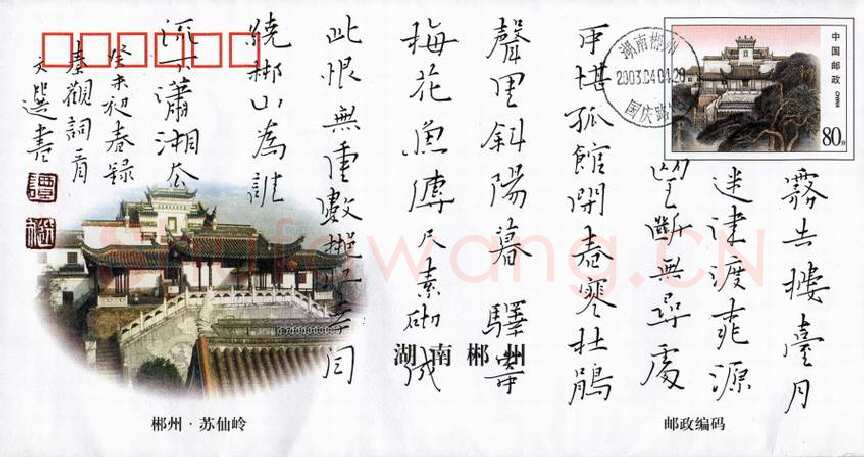 霧失樓臺月
迷津渡桃源
望斷無尋處
可堪孤館閉春寒杜鵑
聲里斜陽暮驛寄
梅花魚傳尺素砌成
此恨無重數郴江幸自
繞郴山為誰
流下瀟湘去
癸未初春錄
秦觀詞一首
文選書
中国邮政 CHINA
80分
湖南郴州
2003.04.04.20
国庆路
湖南郴州
郴州·苏仙岭
邮政编码
shufawang.CN